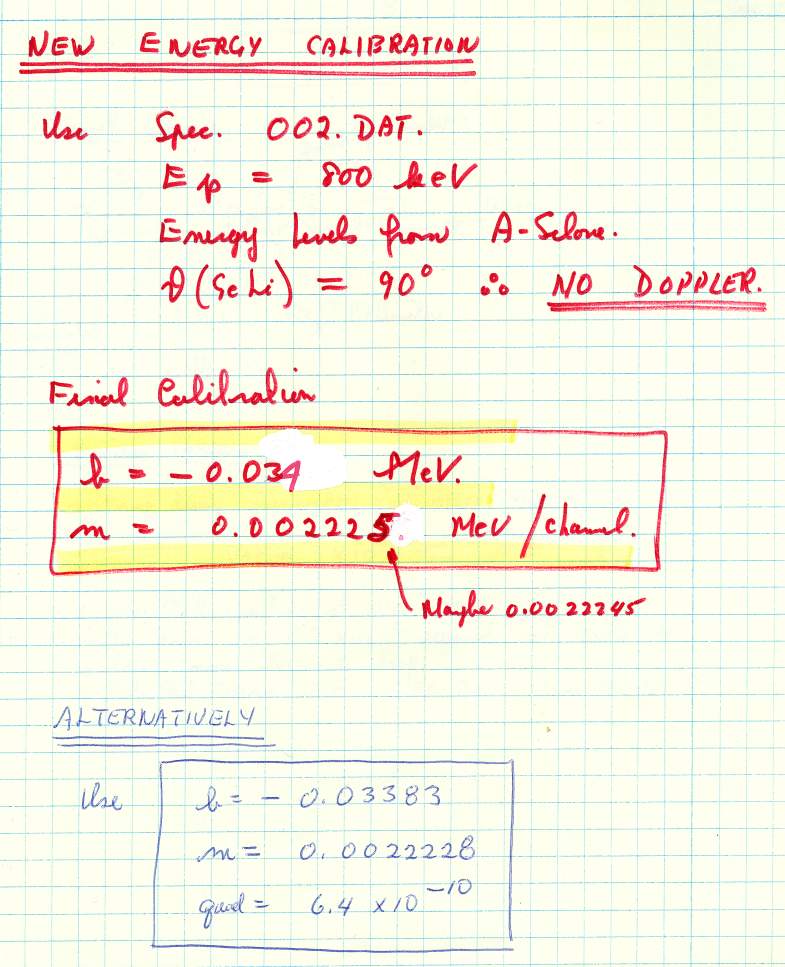 NEW ENERGY CALIBRATION
Use Spec. 002.DAT.
Ep = 800 keV
Energy levels from A-Selove.
θ(GeLi) = 90° ∴ NO DOPPLER.
Final Calibration
b = -0.034 MeV.
m = 0.002225 MeV/channel.
Maybe 0.0022245
ALTERNATIVELY
Use b = - 0.03383
m = 0.0022228
quad = 6.4 x10⁻¹⁰